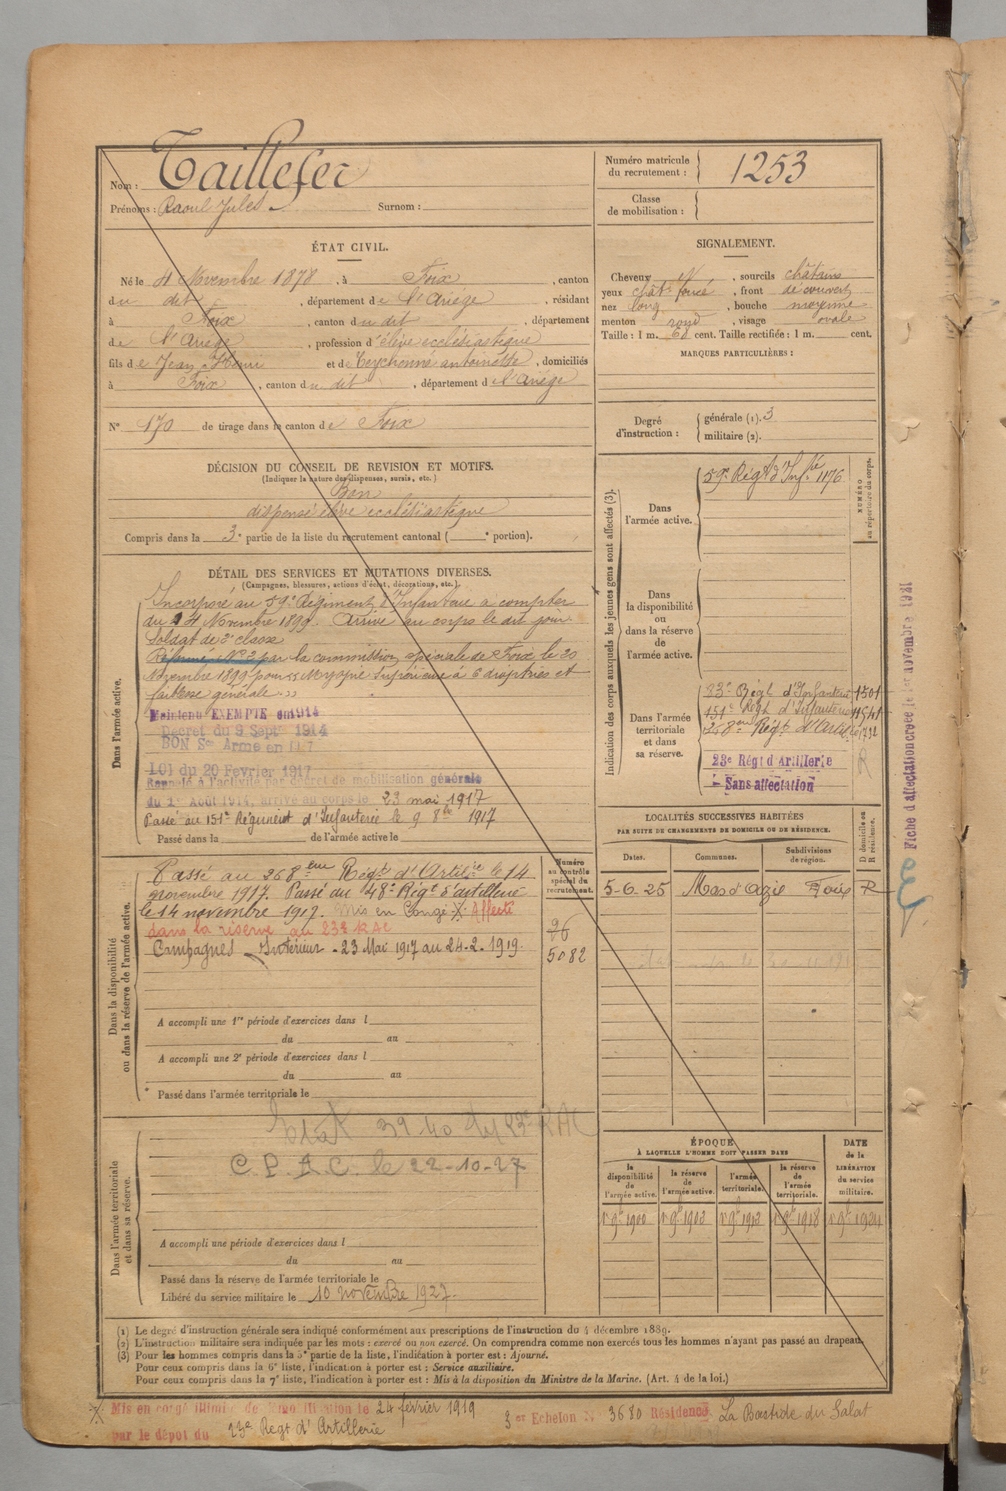 Nom : Taillefer
Prénoms : Raoul Jules Surnom :
Numéro matricule du recrutement : 1253
Classe de mobilisation :
ÉTAT CIVIL.
Né le 4 Novembre 1878, à Foix, canton
du dit, département de l'Ariège, résidant
à Foix, canton du dit, département
de l'Ariège, profession d'élève ecclésiastique
fils de Jean Henri et de Teychenné antoinette, domiciliés
à Foix, canton du dit, département de l'Ariège
N° 170 de tirage dans le canton de Foix
SIGNALEMENT.
Cheveux N, sourcils châtains
yeux chât. foncé, front découvert
nez long, bouche moyenne
menton rond, visage ovale
Taille : 1 m. 68 cent. Taille rectifiée : 1 m. cent.
MARQUES PARTICULIÈRES :
Degré d'instruction : générale (1). 3
militaire (2).
DÉCISION DU CONSEIL DE REVISION ET MOTIFS.
(Indiquer la nature des dispenses, sursis, etc.)
Bon
dispensé élève ecclésiastique
Compris dans la 3e partie de la liste du recrutement cantonal ( e portion).
DÉTAIL DES SERVICES ET MUTATIONS DIVERSES.
(Campagnes, blessures, actions d'éclat, décorations, etc.).
Dans l'armée active.
Incorporé au 59e Régiment d'Infanterie à compter
du 14 Novembre 1899. Arrivé au corps le dit jour
Soldat de 2e classe
Réformé N° 2 par la commission spéciale de Foix le 20
Novembre 1899 pour "Myopie Supérieure à 6 dioptries et
faiblesse générale"
Maintenu EXEMPTÉ en 1914
Décret du 9 Septre 1914
BON Sce Armé en 1917
LOI du 20 Février 1917
Rappelé à l'activité par décret de mobilisation générale
du 1er Août 1914, arrivé au corps le 23 mai 1917
Passé au 151e Régiment d'Infanterie le 9 8bre 1917
Passé dans la de l'armée active le
Indication des corps auxquels les jeunes gens sont affectés (3).
NUMÉRO au répertoire du corps.
Dans l'armée active.
59e Régt d'Infie 1176
Dans la disponibilité ou dans la réserve de l'armée active.
Dans l'armée territoriale et dans sa réserve.
83e Régt d'Infanterie 1501
151e Régt d'Infanterie 11541
268eme Régt d'Artie
23e Régt d'Artillerie R
Sans affectation
Dans la disponibilité ou dans la réserve de l'armée active.
Numéro au contrôle spécial du recrutement.
Passé au 268eme Régt d'Artie le 14
novembre 1917. Passé au 48e Régt d'artillerie
le 14 novembre 1917. Mis en Congé X. Affecté
dans la réserve au 23e RAC
Campagnes Intérieur - 23 Mai 1917 au 24-2-1919.
96
5082
A accompli une 1re période d'exercices dans l
du au
A accompli une 2e période d'exercices dans l
du au
Passé dans l'armée territoriale le
LOCALITÉS SUCCESSIVES HABITÉES
PAR SUITE DE CHANGEMENTS DE DOMICILE OU DE RÉSIDENCE.
Dates. Communes. Subdivisions de région. D domicile ou R résidence.
5-6.25 Mas d'Azil Foix R
Dans l'armée territoriale et dans sa réserve.
39 40 23e RAC
C.P.A.C. le 22-10-27
A accompli une période d'exercices dans l
du au
Passé dans la réserve de l'armée territoriale le
Libéré du service militaire le 10 novembre 1927.
ÉPOQUE
À LAQUELLE L'HOMME DOIT PASSER DANS
DATE de la LIBÉRATION du service militaire.
la disponibilité de l'armée active. la réserve de l'armée active. l'armée territoriale. la réserve de l'armée territoriale.
1r 9bre 1900 1r 9bre 1903 1r 9bre 1913 1r 9bre 1918 1r 9bre 1924
(1) Le degré d'instruction générale sera indiqué conformément aux prescriptions de l'instruction du 4 décembre 1889.
(2) L'instruction militaire sera indiquée par les mots : exercé ou non exercé. On comprendra comme non exercés tous les hommes n'ayant pas passé au drapeau.
(3) Pour les hommes compris dans la 5e partie de la liste, l'indication à porter est : Ajourné.
Pour ceux compris dans la 6e liste, l'indication à porter est : Service auxiliaire.
Pour ceux compris dans la 7e liste, l'indication à porter est : Mis à la disposition du Ministre de la Marine. (Art. 4 de la loi.)
X Mis en congé illimité de démobilisation le 24 février 1919 Echelon N° 3680 Résidence La Bastide du Salat
par le dépôt du 23e Régt d'Artillerie
Fiche d'affectation créée le 1er novembre 1921